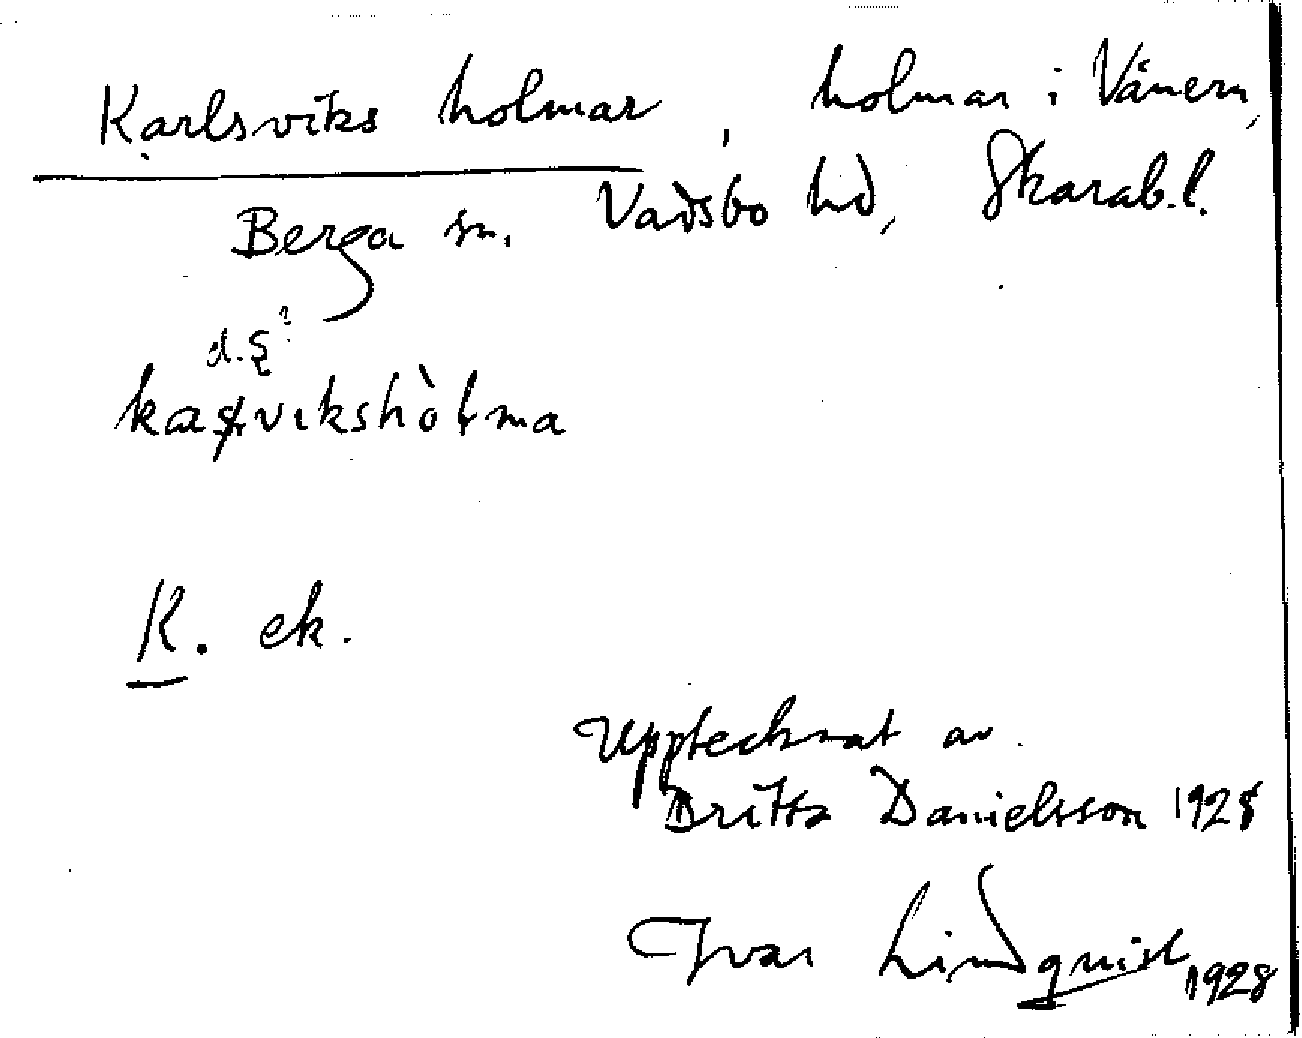 Karlsviks holmar, holmar i Vänern,
Berga sn. Vadsbo hd, Skarab. l.
K. ek.
Upptecknat av
Britta Danielsson 1928
Ivar Lindquist 1928